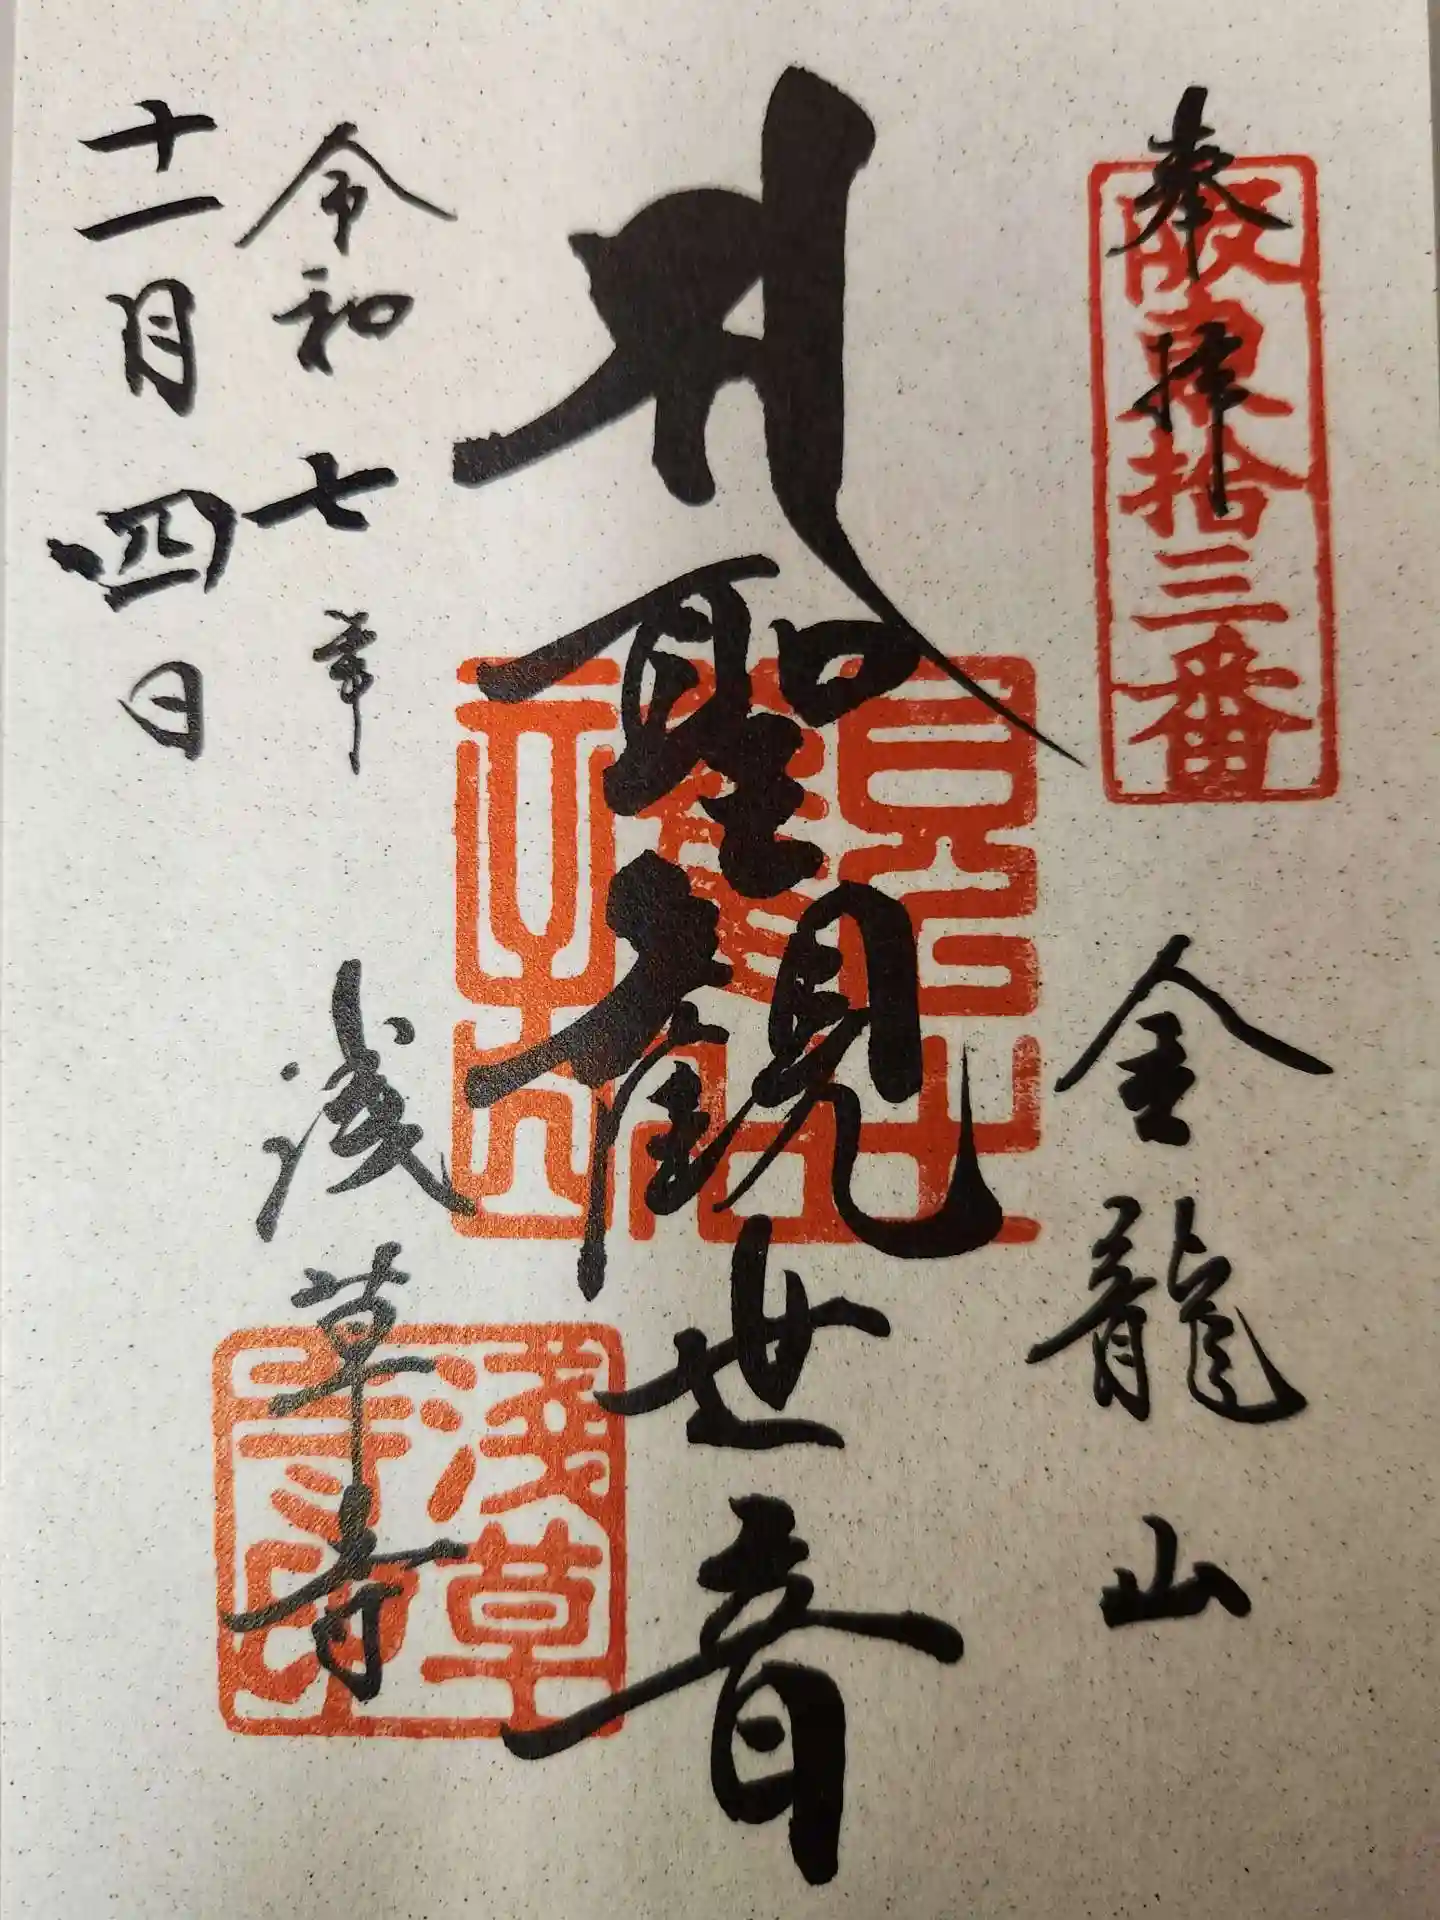 奉拝
阪東拾三番
金龍山
聖観世音
浅草寺
浅草寺印
令和七年
十一月四日